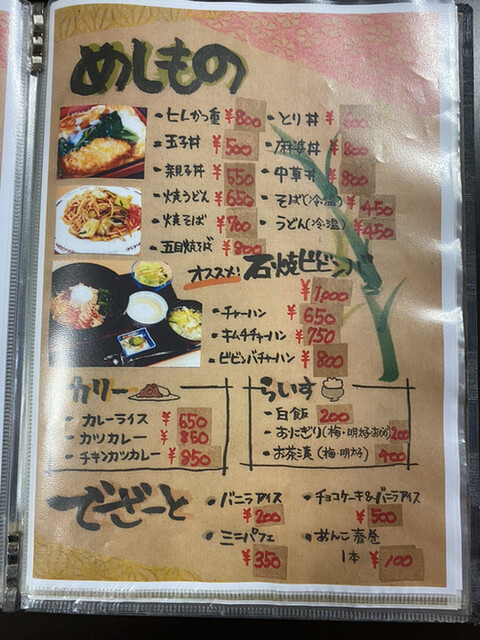 めしもの
・七しかつ重 ¥800
・玉子丼 ¥500
・親子丼 ¥550
・焼うどん ¥650
・焼そば ¥700
・五目焼そば ¥800
・とり丼 ¥600
・麻婆丼 ¥800
・中華丼 ¥800
・そば(冷温) ¥450
・うどん(冷温) ¥450
オススメ! 石焼ビビンバ
¥1,000
・チャーハン ¥650
・キムチチャーハン ¥750
・ビビンバチャーハン ¥800
カリー
・カレーライス ¥650
・カツカレー ¥850
・チキンカツカレー ¥850
らいす
・白飯 200
・おにぎり(梅・明太) 200
・お茶漬(梅・明太) 400
でざーと
・バニラアイス
¥200
・ミニパフェ
¥350
・チョコケーキ&バニラアイス
¥500
・あんこ春巻
1本 ¥100